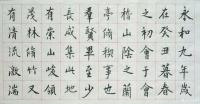 永和九年歲
在癸丑暮春
之初會于會
稽山陰之蘭
亭脩禊事也
羣賢畢至少
長咸集此地
有崇山峻領
茂林脩竹又
有清流激湍